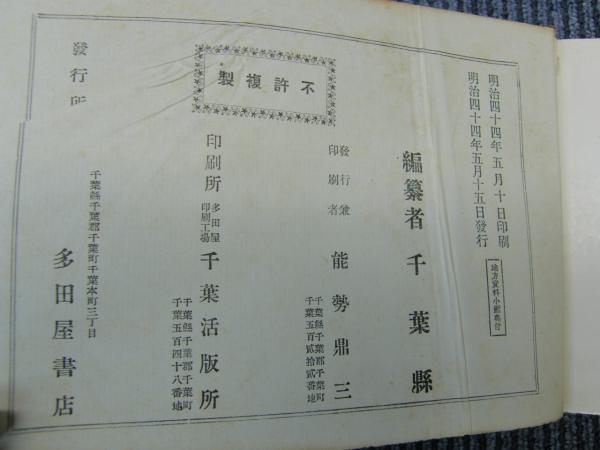 明治四十四年五月十日印刷
明治四十四年五月十五日發行
地方資料小鑑奥付
編纂者 千葉縣
發行兼
印刷者
能勢鼎三
千葉縣千葉郡千葉町
千葉五百貳拾貳番地
不許複製
印刷所
多田屋
印刷工場
千葉活版所
千葉縣千葉郡千葉町
千葉五百四十八番地
發行所
千葉縣千葉郡千葉町千葉本町三丁目
多田屋書店